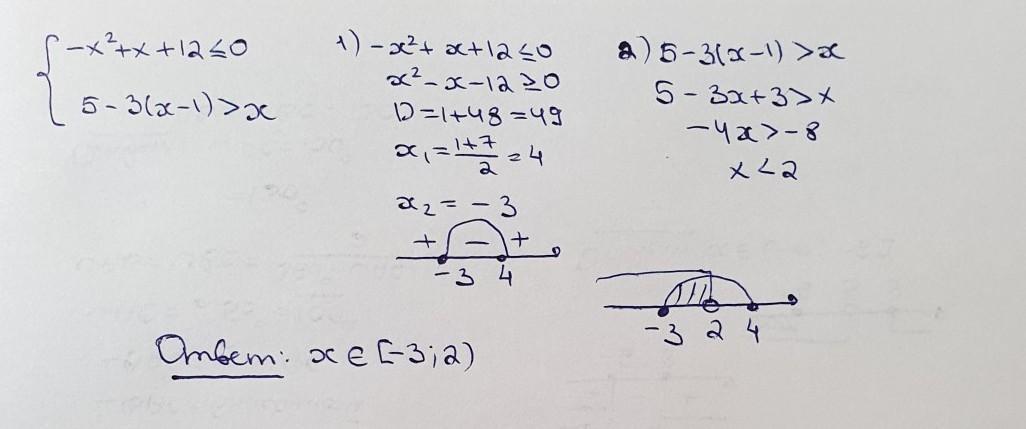 { -x²+x+12≤0
5-3(x-1)>x
1) -x²+x+12≤0
x²-x-12≥0
D=1+48=49
x₁=(1+7)/2=4
x₂=-3
+ - +
-3 4
2) 5-3(x-1)>x
5-3x+3>x
-4x>-8
x<2
-3 2 4
Ответ: x∈[-3;2)